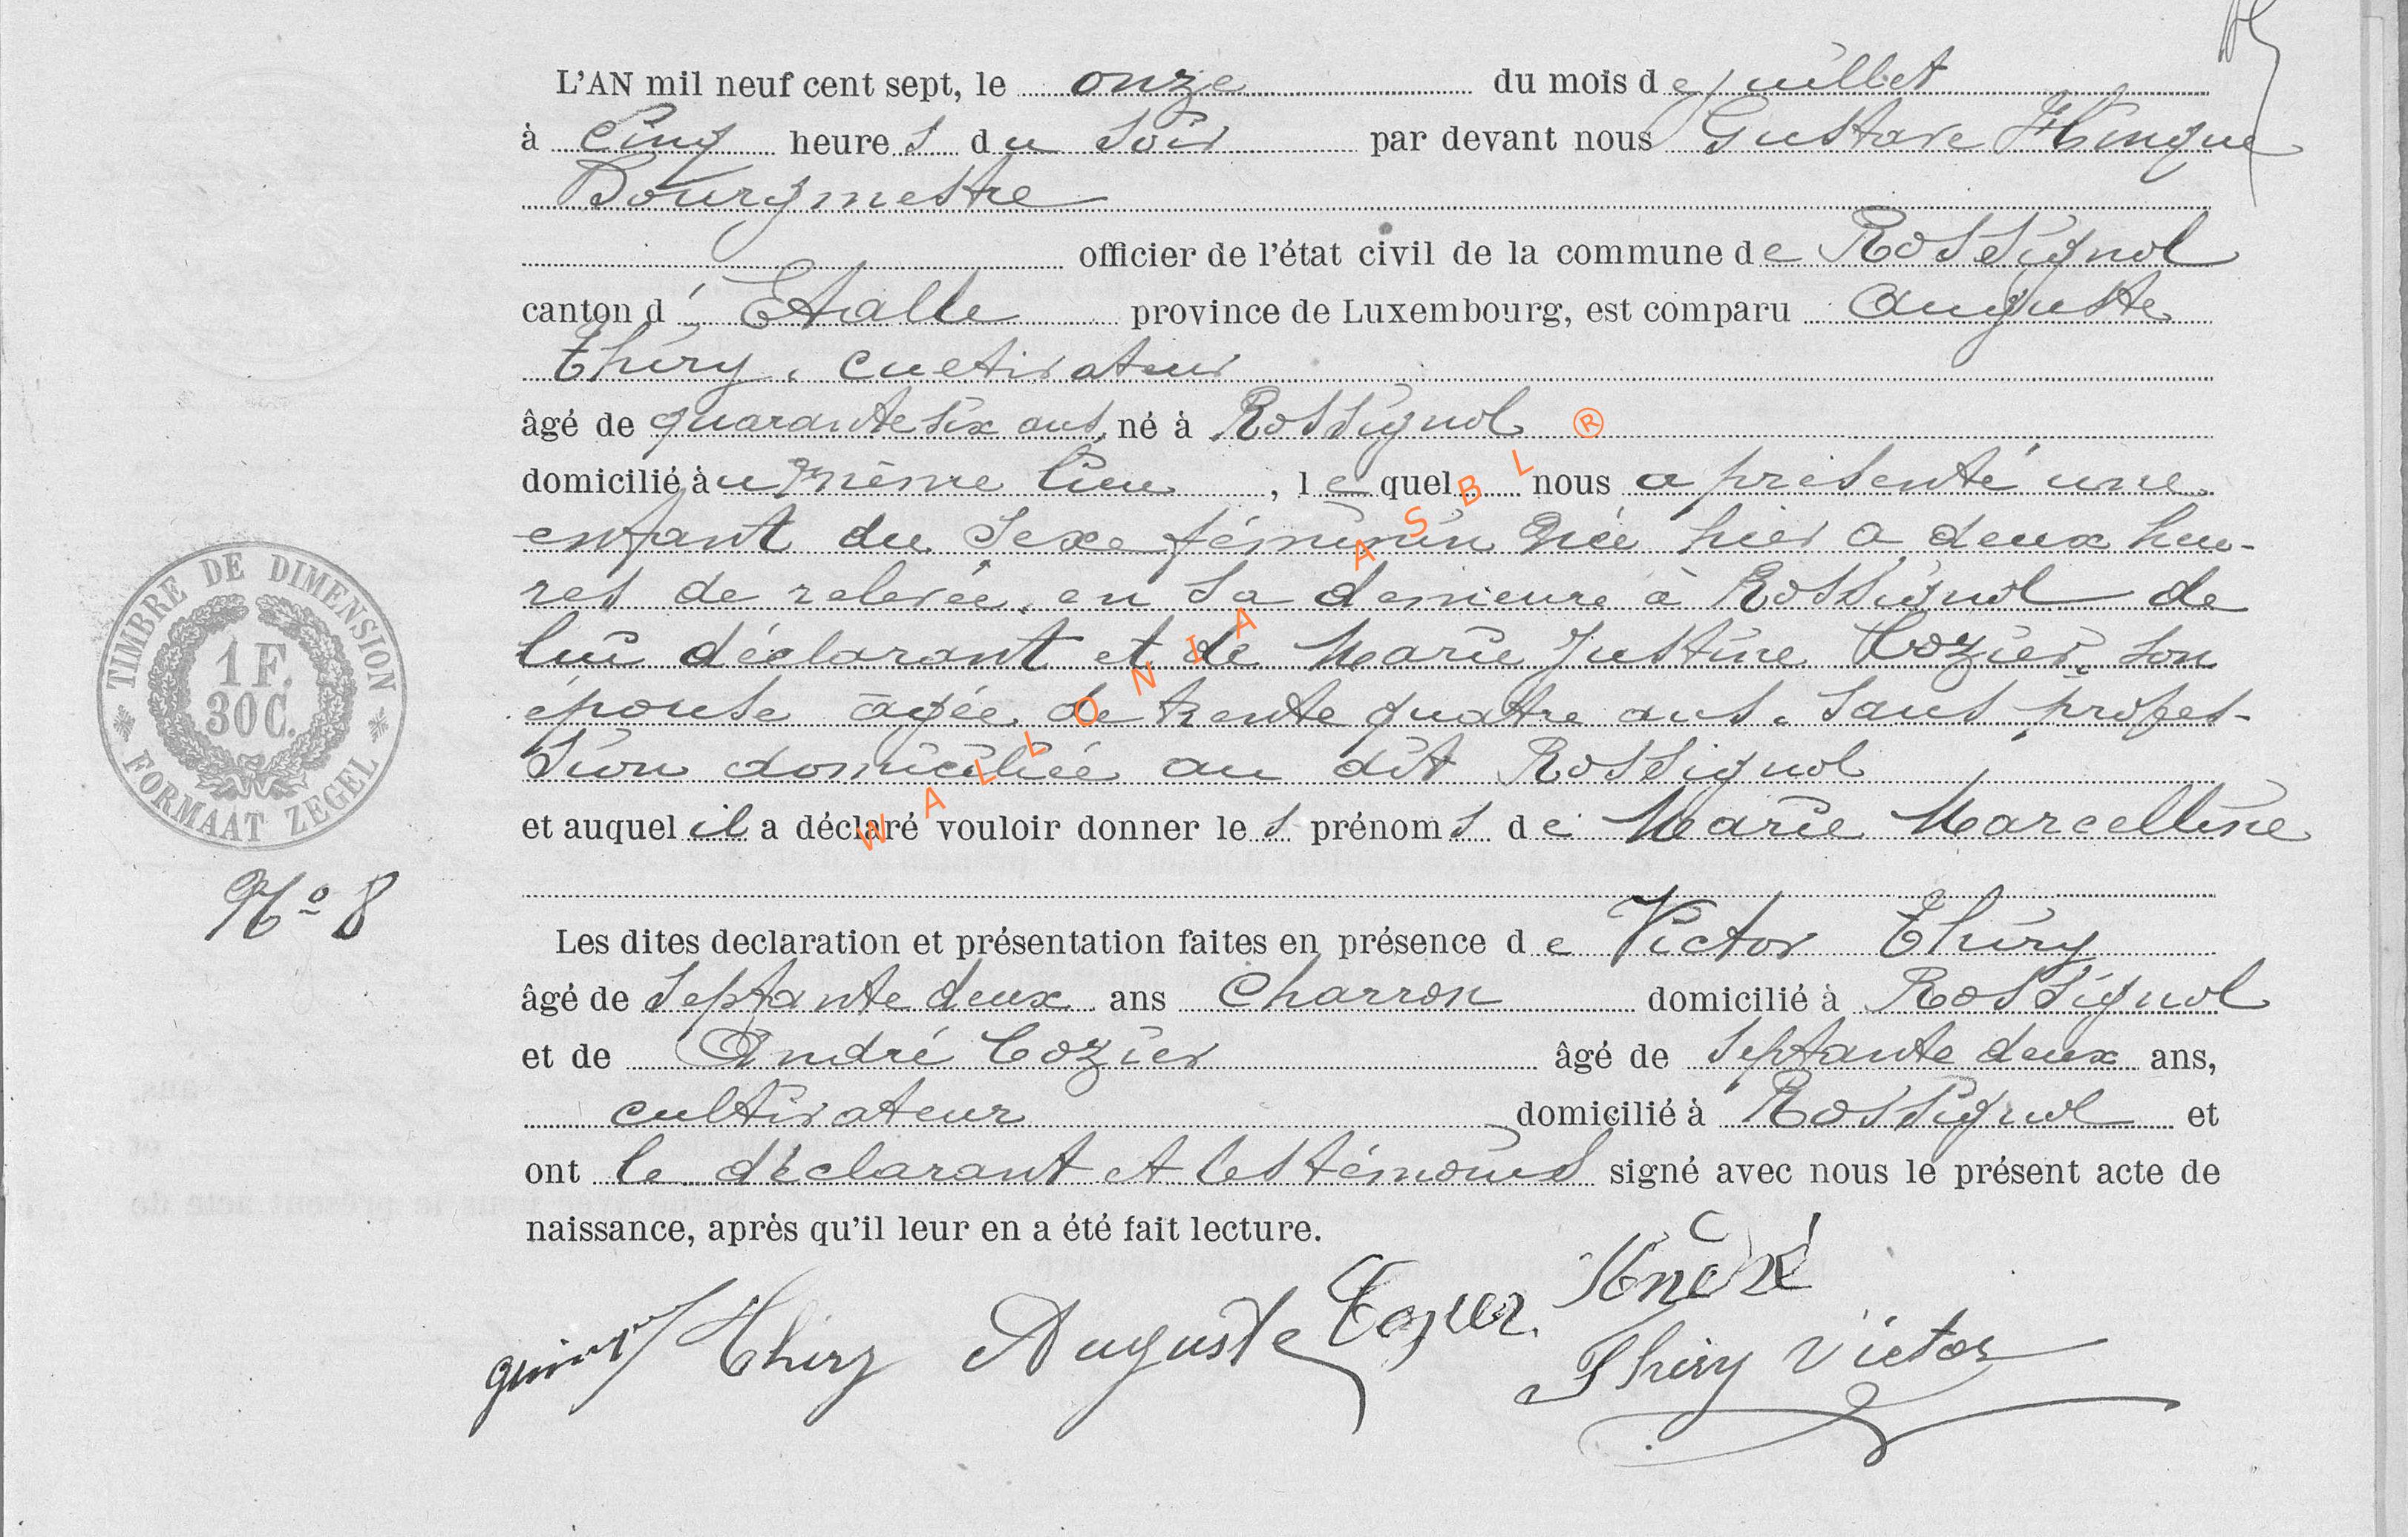 L'AN mil neuf cent sept, le onze du mois de juillet
à Cinq heures du soir par devant nous Gustave Hinque
Bourgmestre
officier de l'état civil de la commune de Rossignol
canton d' Etalle province de Luxembourg, est comparu Auguste
Thiry, cultivateur
âgé de quarante six ans, né à Rossignol ®
domicilié àu même lieu, lequel nous a présenté une
enfant du sexe féminin née hier a deux heu-
res de relevée, en sa demeure à Rossignol de
lui déclarant et de Marie Justine Cozier, son
épouse âgée de trente quatre ans, sans profes-
sion domiciliée au dit Rossignol
WALLONIA ASBL
et auquel il a déclaré vouloir donner les prénoms de Marie Marcelline
TIMBRE DE DIMENSION
1 F.
30 C.
FORMAAT ZEGEL
No 8
Les dites declaration et présentation faites en présence de Victor Thiry
âgé de septante deux ans Charron domicilié à Rossignol
et de André Cozier âgé de septante deux ans,
cultivateur domicilié à Rossignol et
ont le déclarant et les témoins signé avec nous le présent acte de
naissance, après qu'il leur en a été fait lecture.
Thiry Auguste Cozier André
Thiry Victor